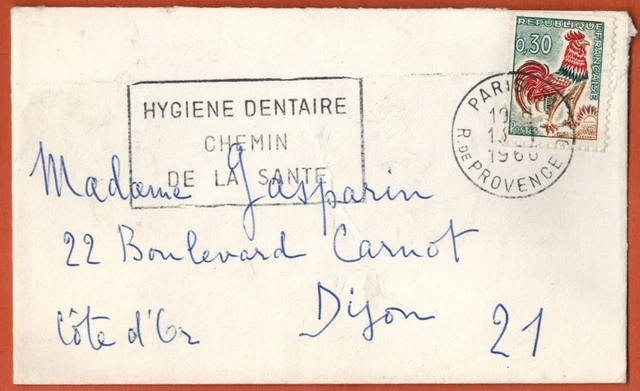 REPUBLIQUE FRANÇAISE
0,30
POSTES
HYGIENE DENTAIRE
CHEMIN
DE LA SANTE
PARIS
R. DE PROVENCE
Madame Gasparin
22 Boulevard Carnot
Dijon 21
Côte d'Or